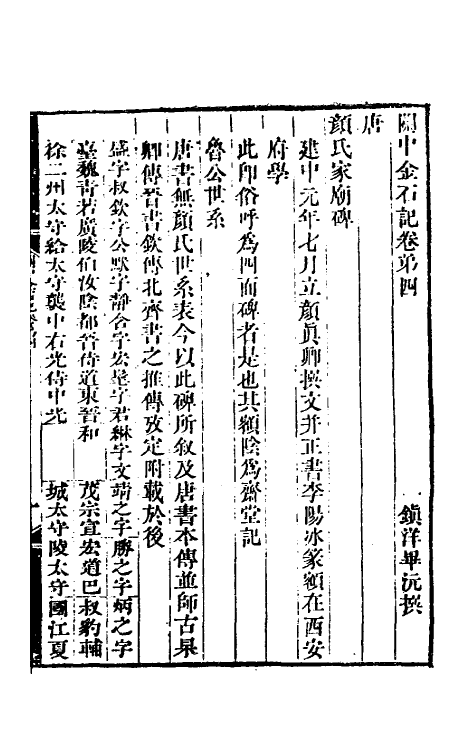 關中金石記卷弟四
鎮洋畢沅撰
唐
顏氏家廟碑
建中元年七月立顏眞卿撰文并正書李陽冰篆額在西安
府學
此即俗呼為四面碑者是也其額陰為齋堂記
魯公世系
唐書無顏氏世系表今以此碑所敘及唐書本傳並師古杲
卿傳晉書欽傳北齊書之推傳攷定附載於後
盛字叔 欽字公 默字靜 含字宏 髦字君 綝字文 靖之字 勝之字 炳之字
臺魏靑 若廣陵 伯汝陰 都晉侍 道東晉 和 茂宗宣 宏道巴 叔豹輔
徐二州 太守給 太守襲 中右光 侍中光 城太守 陵太守 國江夏